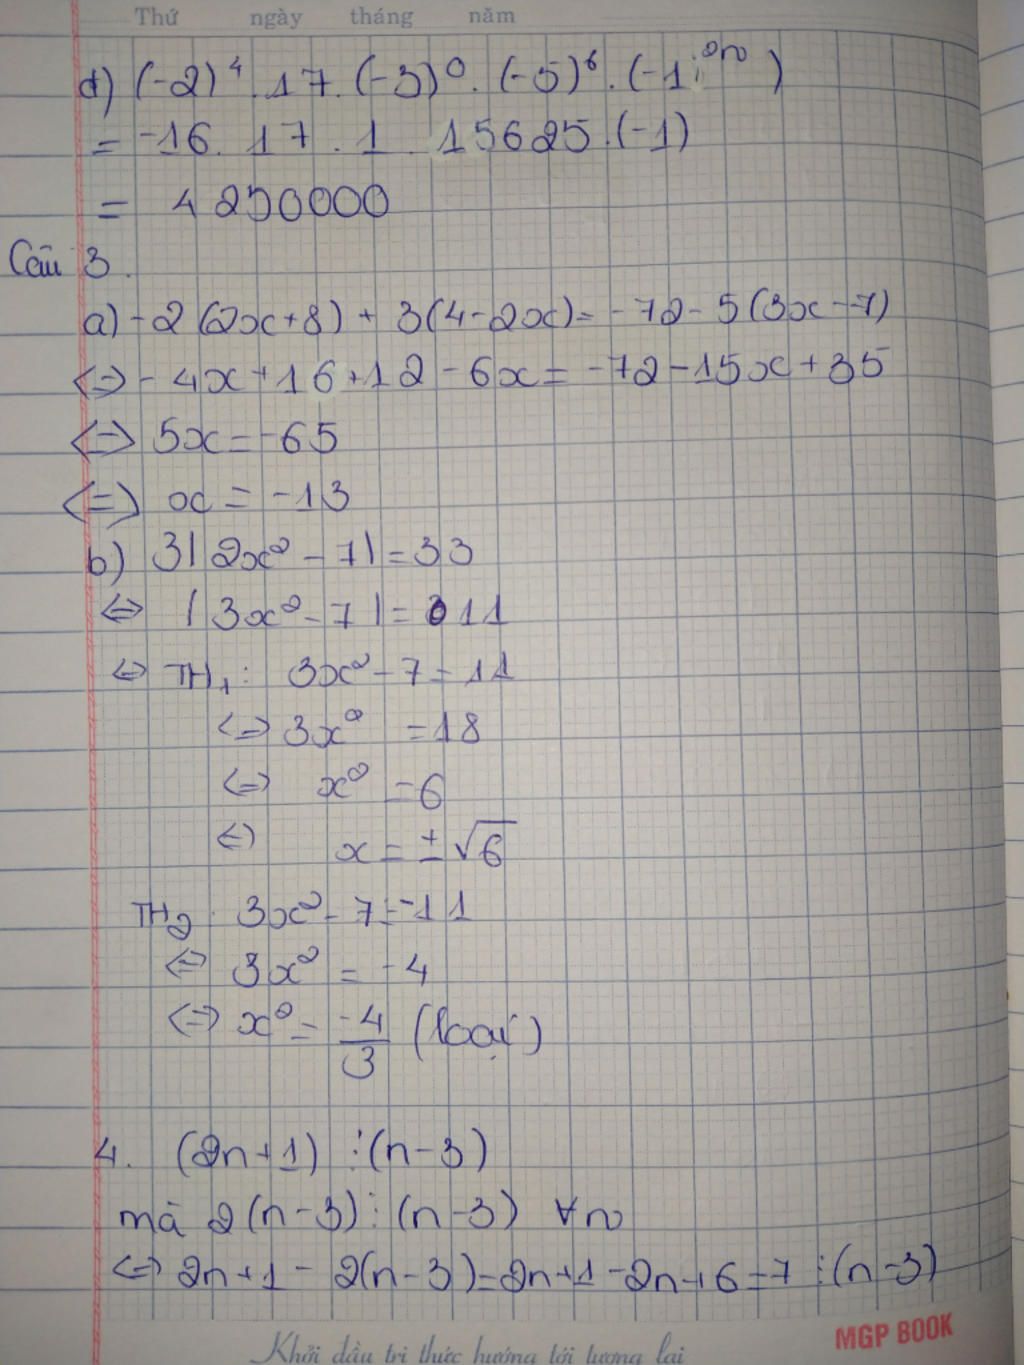 Thứ ngày tháng năm
d) (-2)⁴.17.(-3)⁰.(-5)⁶.(-1²ⁿ)
= -16.17.1.15625.(-1)
= 4250000
Câu 3.
a) -2(2x+8)+3(4-2x)=-72-5(3x-7)
<=> -4x+16+12-6x=-72-15x+35
<=> 5x=-65
<=> x=-13
b) 3|2x²-7|=33
<=> |3x²-7|=11
<=> TH₁: 3x²-7=11
<=> 3x²=18
<=> x²=6
<=> x=±√6
TH₂: 3x²-7=-11
<=> 3x²=-4
<=> x²=-4/3 (loại)
4. (2n+1)⋮(n-3)
mà 2(n-3)⋮(n-3) ∀n
<=> 2n+1-2(n-3)=2n+1-2n+6=7⋮(n-3)
MGP BOOK
Khởi đầu tri thức hướng tới tương lai